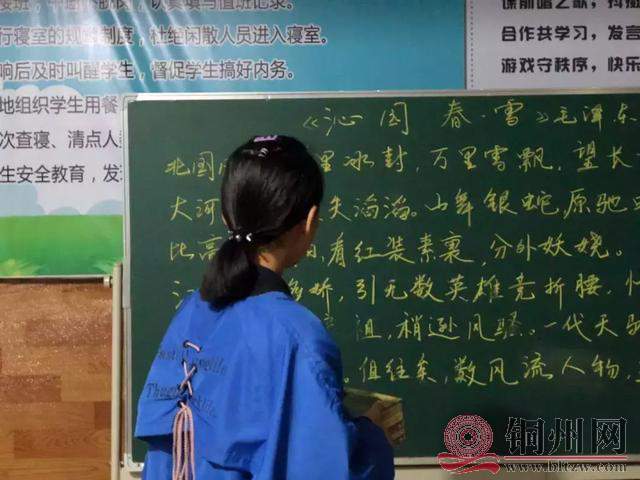 接班，中途不脱岗，认真填写值班记录。
行寝室的规章制度，杜绝闲散人员进入寝室。
响后及时叫醒学生，督促学生搞好内务。
地组织学生用餐
次查寝、清点人
生安全教育，发
合作共学习，发言
游戏守秩序，快乐
《沁园春·雪》毛泽东
北国 里冰封，万里雪飘，望长
大河 失滔滔。山舞银蛇，原驰
比高 ，看红装素裹，分外妖娆。
江 多娇，引无数英雄竞折腰，
祖，稍逊风骚。一代天骄
。俱往矣，数风流人物，
铜州网
www.bltzw.com